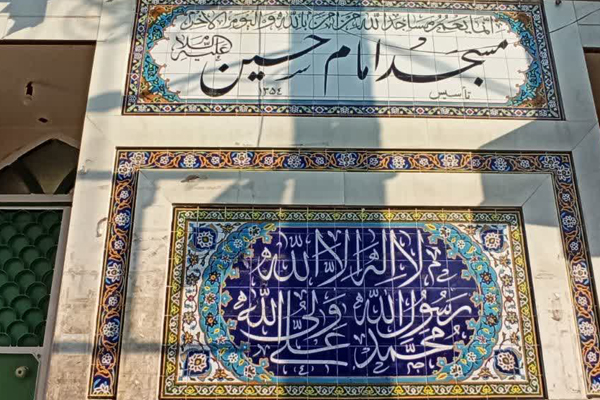 انما یعمر مساجد الله من آمن بالله والیوم الآخر
مسجد امام حسین علیه السلام
تأسیس ۱۳۵۴
لا اله الا الله
محمد رسول الله علی ولی الله